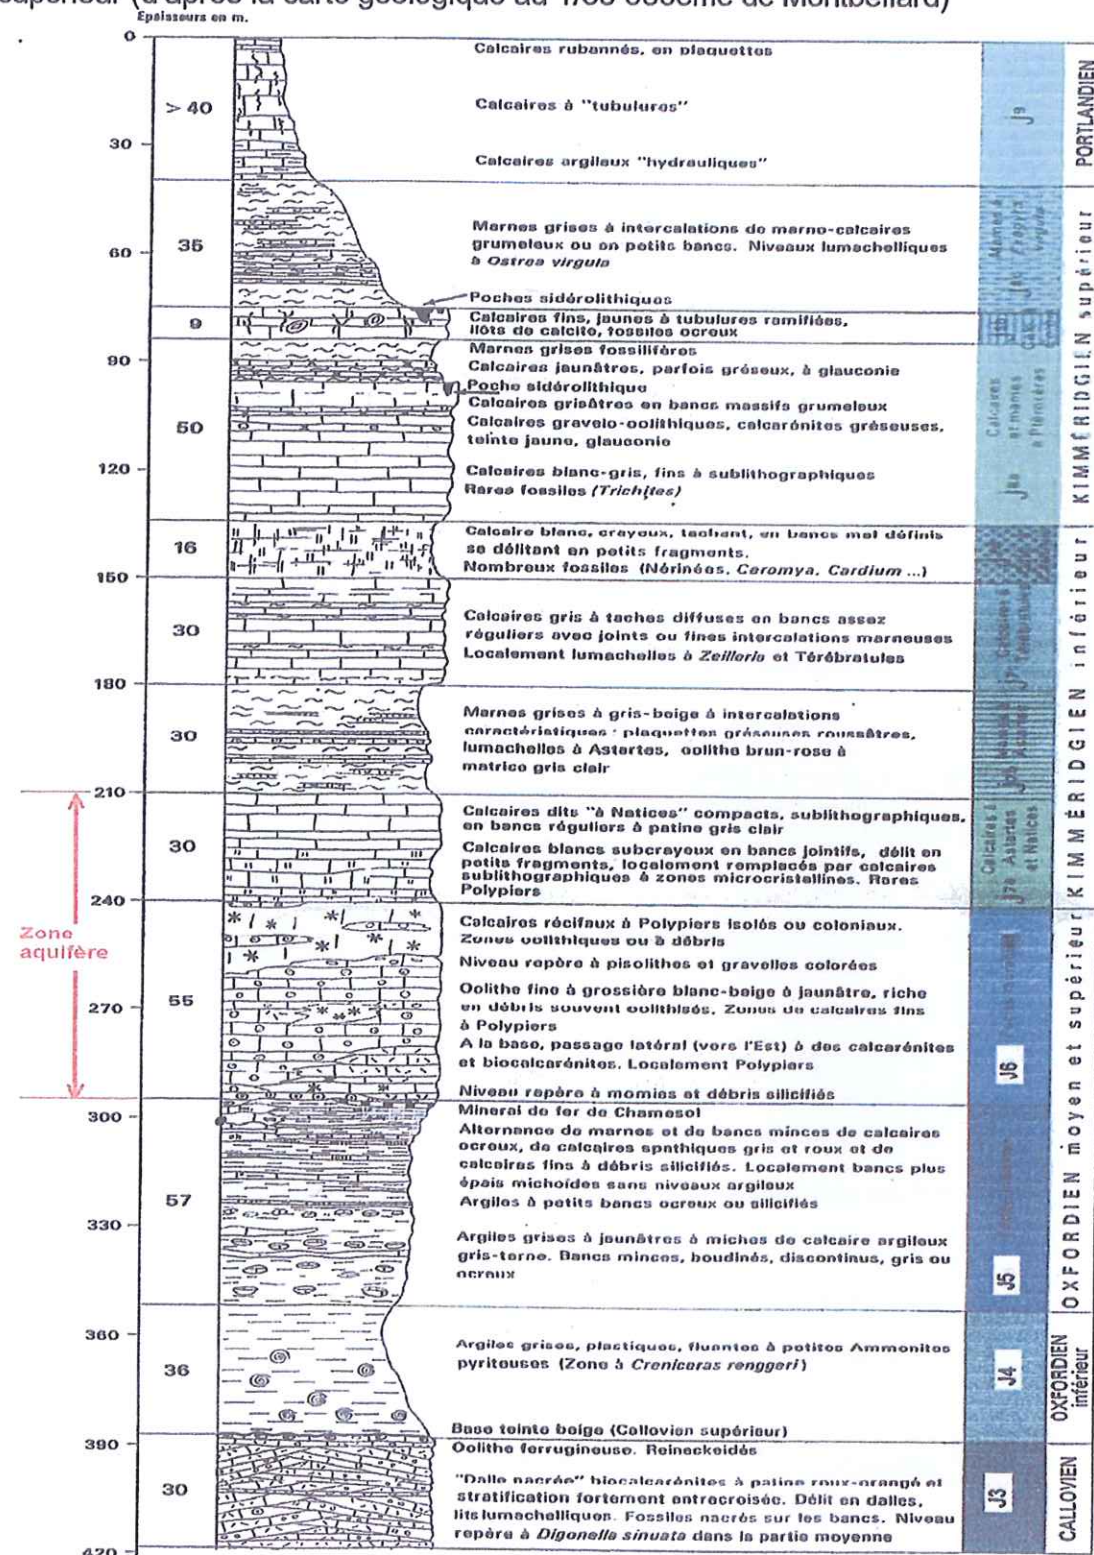 supérieur (d'après la carte géologique au 1/50 000ème de Montbéliard)
Epaisseurs en m.
0
30
60
90
120
150
180
210
240
270
300
330
360
390
420
> 40
35
9
50
16
30
30
30
55
57
36
30
Zone
aquifère
Calcaires rubannés, en plaquettes
Calcaires à "tubulures"
Calcaires argileux "hydrauliques"
Marnes grises à intercalations de marno-calcaires
grumeleux ou en petits bancs. Niveaux lumachelliques
à Ostrea virgula
Poches sidérolithiques
Calcaires fins, jaunes à tubulures ramifiées,
ilôts de calcite, fossiles ocreux
Marnes grises fossilifères
Calcaires jaunâtres, parfois gréseux, à glauconie
Poche sidérolithique
Calcaires grisâtres en bancs massifs grumeleux
Calcaires gravelo-oolithiques, calcarénites gréseuses,
teinte jaune, glauconie
Calcaires blanc-gris, fins à sublithographiques
Rares fossiles (Trichites)
Calcaire blanc, crayeux, tachant, en bancs mal définis
se délitant en petits fragments.
Nombreux fossiles (Nérinées, Ceromya, Cardium ...)
Calcaires gris à taches diffuses en bancs assez
réguliers avec joints ou fines intercalations marneuses
Localement lumachelles à Zeilleria et Térébratules
Marnes grises à gris-beige à intercalations
caractéristiques : plaquettes gréseuses roussâtres,
lumachelles à Astartes, oolithe brun-rose à
matrice gris clair
Calcaires dits "à Natices" compacts, sublithographiques,
en bancs réguliers à patine gris clair
Calcaires blancs subcrayeux en bancs jointifs, délit en
petits fragments, localement remplacés par calcaires
sublithographiques à zones microcristallines. Rares
Polypiers
Calcaires récifaux à Polypiers isolés ou coloniaux.
Zones oolithiques ou à débris
Niveau repère à pisolithes et gravelles colorées
Oolithe fine à grossière blanc-beige à jaunâtre, riche
en débris souvent oolithisés. Zones de calcaires fins
à Polypiers
A la base, passage latéral (vers l'Est) à des calcarénites
et biocalcarénites. Localement Polypiers
Niveau repère à momies et débris silicifiés
Minerai de fer de Chamesol
Alternance de marnes et de bancs minces de calcaires
ocreux, de calcaires spathiques gris et roux et de
calcaires fins à débris silicifiés. Localement bancs plus
épais michoïdes sans niveaux argileux
Argiles à petits bancs ocreux ou silicifiés
Argiles grises à jaunâtres à miches de calcaire argileux
gris-terne. Bancs minces, boudinés, discontinus, gris ou
ocreux
Argiles grises, plastiques, fluantes à petites Ammonites
pyriteuses (Zone à Creniceras renggeri)
Base teinte beige (Callovien supérieur)
Oolithe ferrugineuse. Reineckeidés
"Dalle nacrée" biocalcarénites à patine roux-orangé et
stratification fortement entrecroisée. Délit en dalles,
lits lumachelliques. Fossiles nacrés sur les bancs. Niveau
repère à Digonella sinuata dans la partie moyenne
J9
Marnes à
virgula
Calcaires
et marnes
à Ptérocères
J8a
Calcaires à
Térébratules
J7b Marnes à
Astartes
J7a
Calcaires à
Astartes
et Natices
J6
J5
J4
J3
PORTLANDIEN
KIMMÉRIDGIEN supérieur
KIMMÉRIDGIEN inférieur
OXFORDIEN moyen et supérieur
OXFORDIEN
inférieur
CALLOVIEN